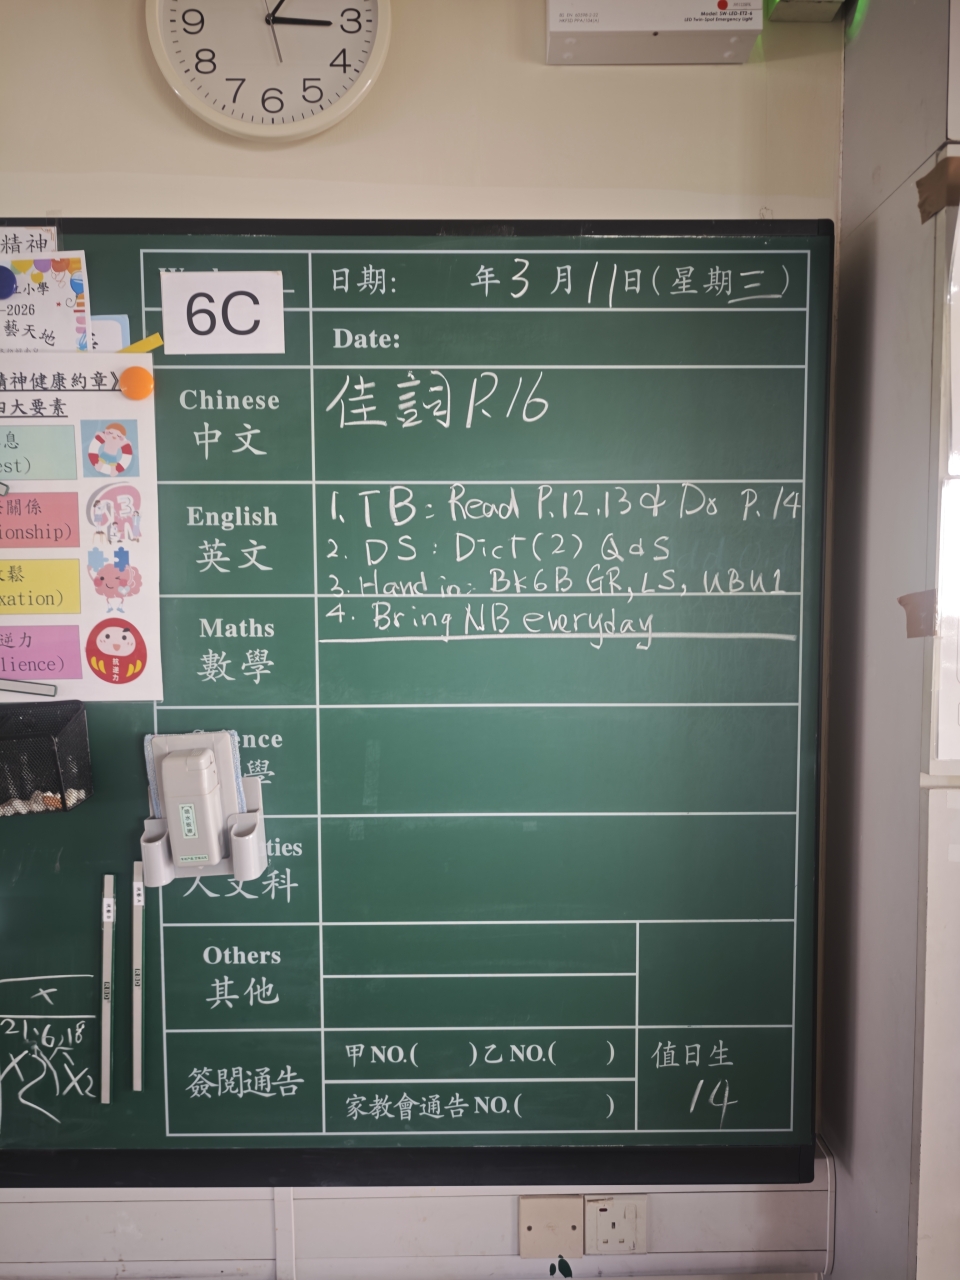 9 3
8 4
7 6 5
Model: SW-LED-ET2-6
LED Twin Spot Emergency Light
精神
小學
-2026
藝天地
精神健康約章》
四大要素
息
est)
關係
ionship)
鬆
xation)
逆力
lience)
抗逆力
6C
日期: 年3月11日(星期三)
Date:
Chinese 佳詞 P.16
中文
English 1. TB: Read P.12,13 & Do P.14
英文 2. DS: Dict(2) Q&S
3. Hand in: BK6B GR, LS, UBU1
Maths 4. Bring NB everyday
數學
ence
學
ties
人文科
Others
其他
簽閱通告 甲NO.( )乙NO.( ) 值日生
家教會通告NO.( ) 14
x
21, 6, 18
x2